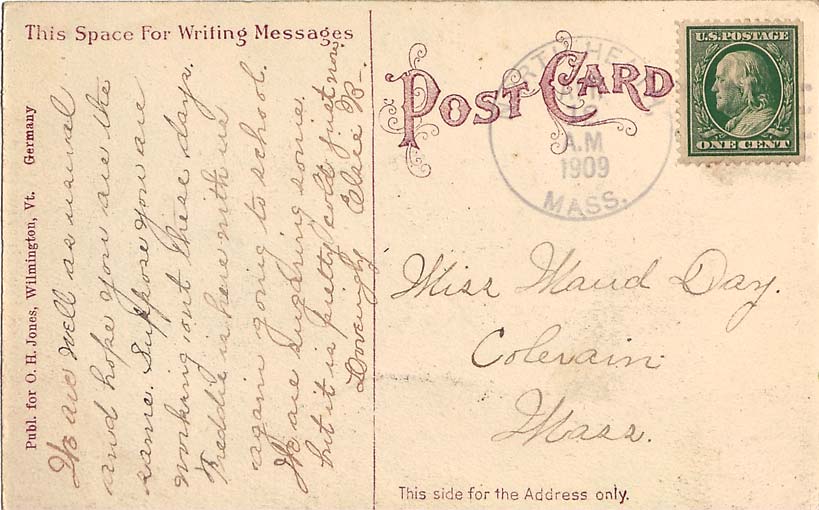 This Space For Writing Messages
Publ. for O. H. Jones, Wilmington, Vt. Germany
We are well as usual
and hope you are the
same. Suppose you are
working out these days.
Freddie is here with us
again going to school.
We are sugaring some.
but it is pretty cold just now
Lovingly Elsie B-.
POST CARD
A.M
1909
MASS.
U.S. POSTAGE
ONE CENT
Miss Maud Day.
Colerain
Mass.
This side for the Address only.